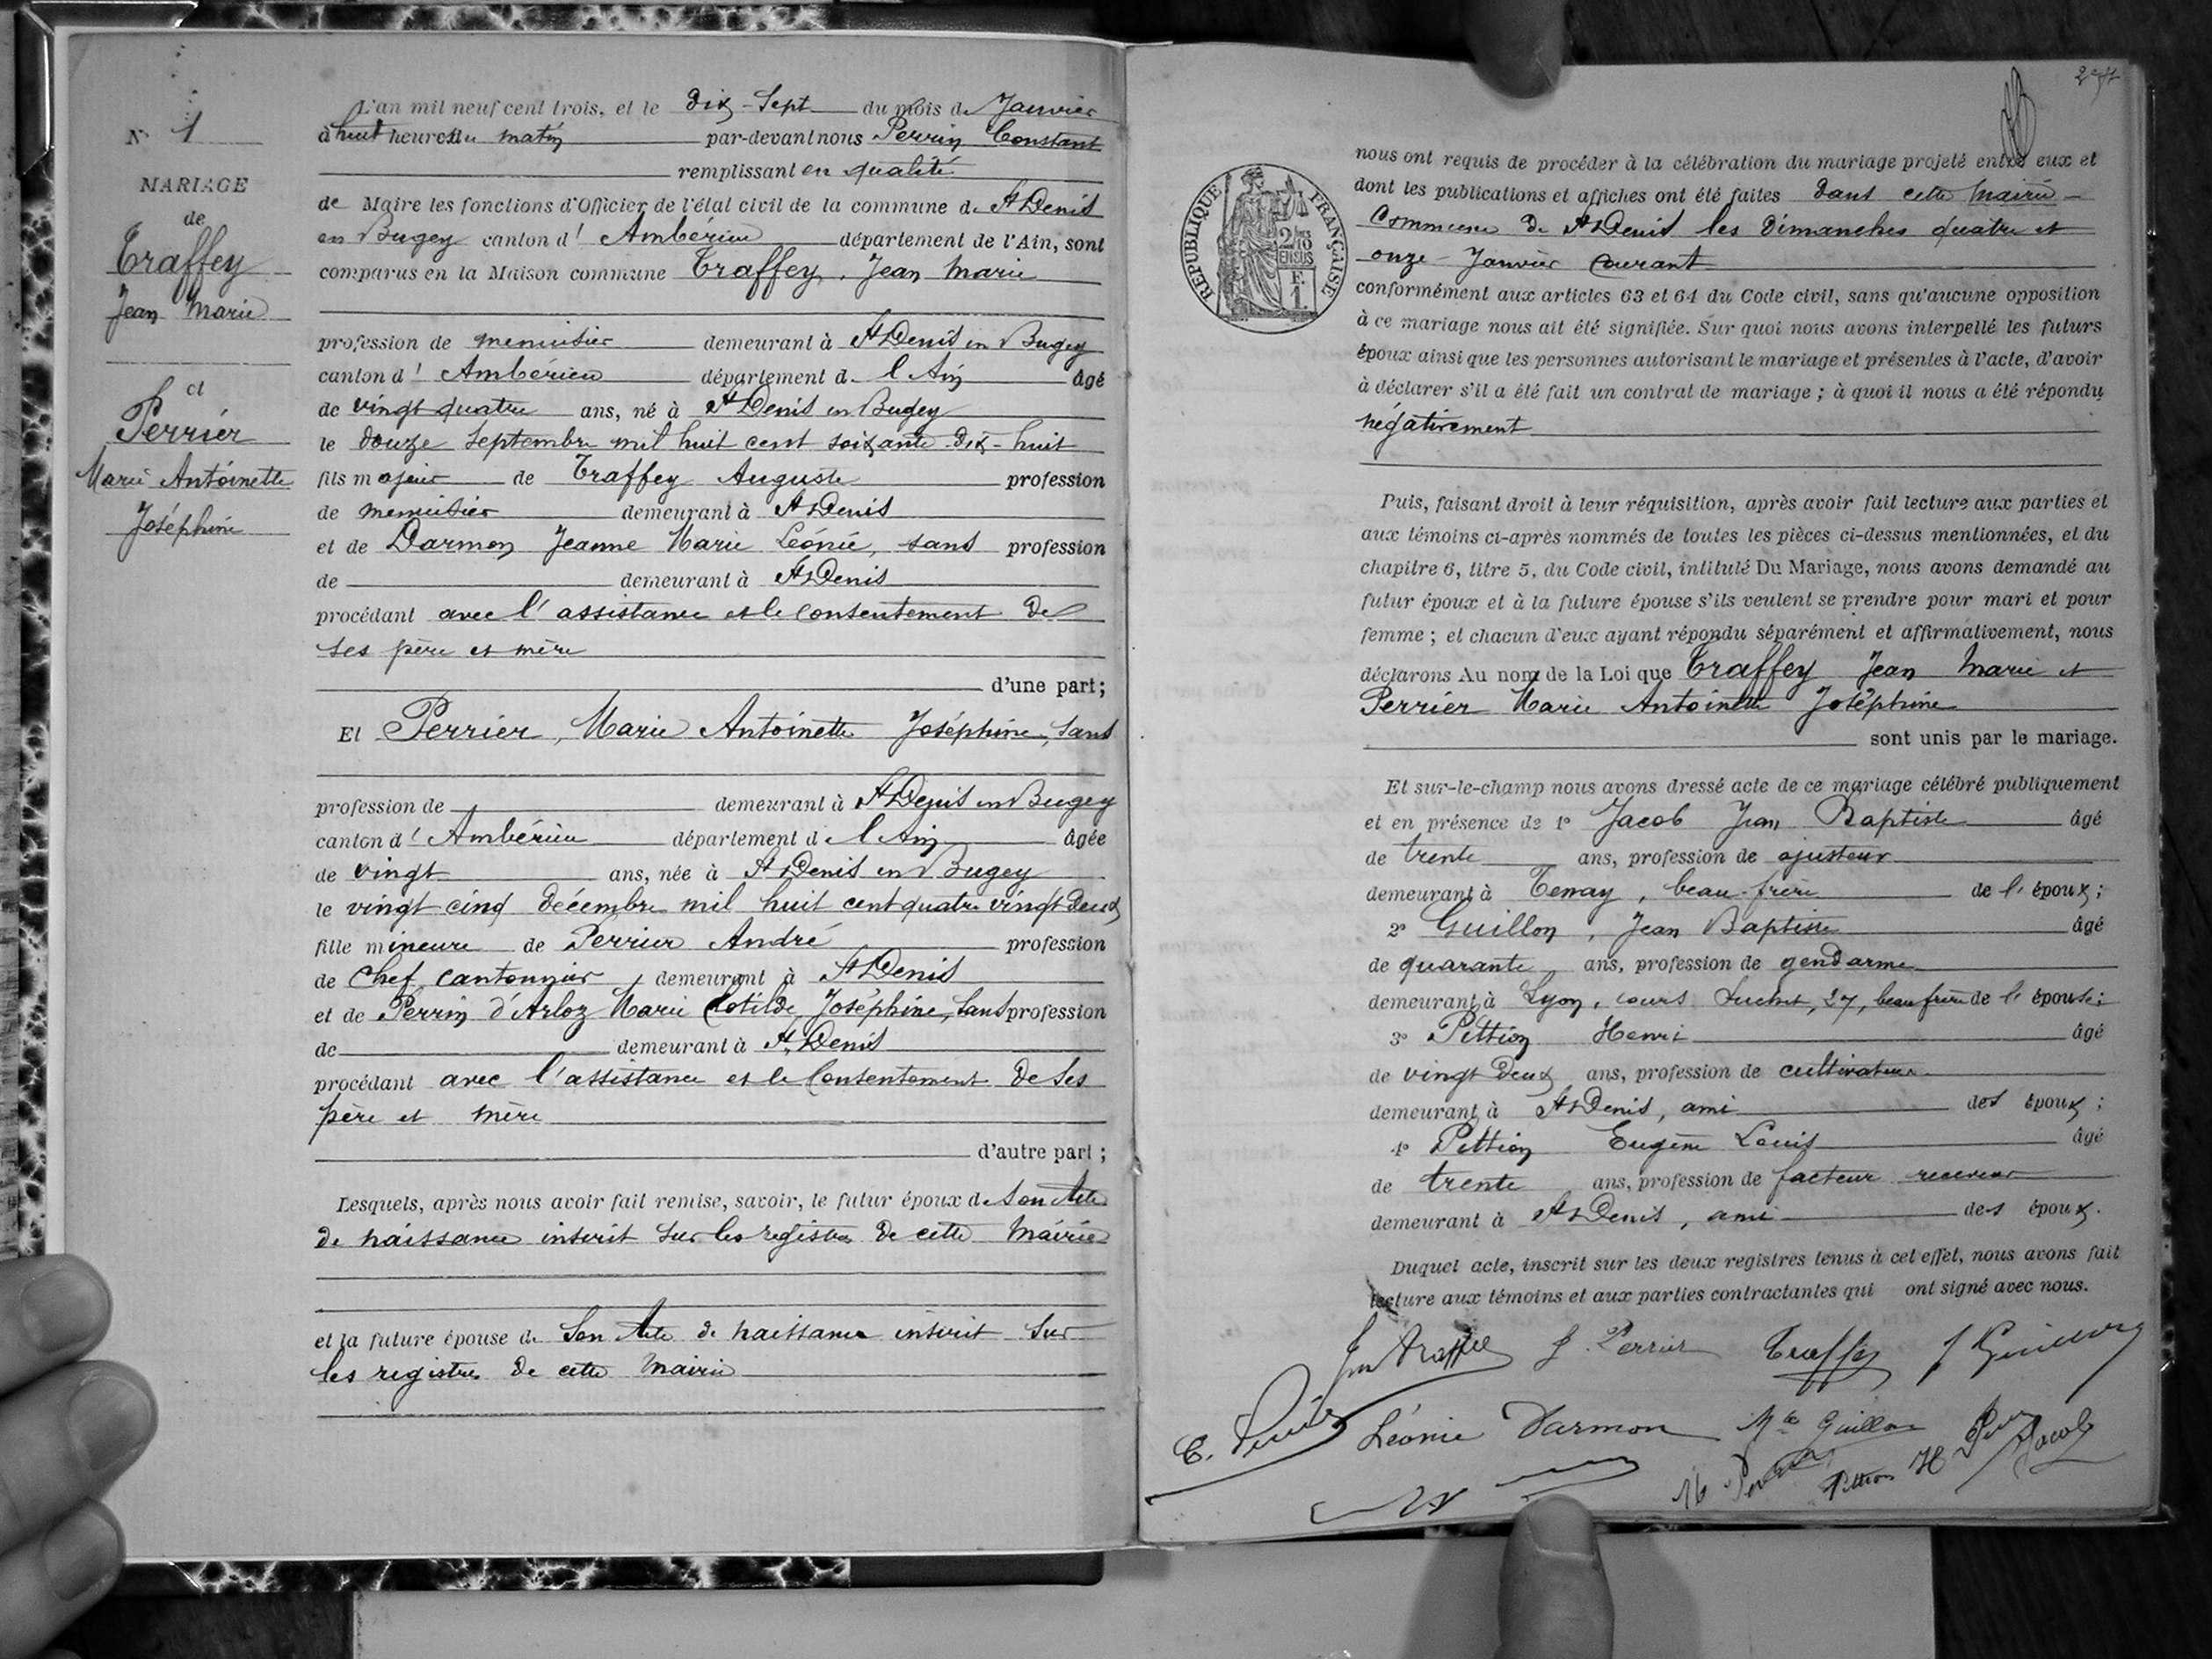 N° 1
MARIAGE
de
Traffey
Jean Marie
et
Perrier
Marie Antoinette
Joséphine
L'an mil neuf cent trois, et le dix-sept du mois de Janvier
à huit heures du matin par-devant nous Perrin Constant
remplissant en qualité
de Maire les fonctions d'Officier de l'état civil de la commune de St Denis
en Bugey canton d' Ambérieu département de l'Ain, sont
comparus en la Maison commune Traffey, Jean Marie
profession de menuisier demeurant à St Denis en Bugey
canton d' Ambérieu département d. l'Ain âgé
de vingt quatre ans, né à St Denis en Bugey
le douze Septembre mil huit cent soixante-dix-huit
fils majeur de Traffey Auguste profession
de menuisier demeurant à St Denis
et de Darmon Jeanne Marie Léonie, sans profession
de demeurant à St Denis
procédant avec l'assistance et le consentement de
ses père et mère
d'une part;
Et Perrier, Marie Antoinette Joséphine, sans
profession de demeurant à St Denis en Bugey
canton d' Ambérieu département d l'Ain âgée
de vingt ans, née à St Denis en Bugey
le vingt cinq décembre mil huit cent quatre vingt deux
fille mineure de Perrier André profession
de chef cantonnier, demeurant à St Denis
et de Perrin d'Arloz Marie Clotilde Joséphine, sans profession
de demeurant à St Denis
procédant avec l'assistance et le consentement de ses
père et mère
d'autre part;
Lesquels, après nous avoir fait remise, savoir, le futur époux de son Acte
de naissance inscrit sur les registres de cette Mairie
et la future épouse de son Acte de naissance inscrit sur
les registres de cette Mairie
nous ont requis de procéder à la célébration du mariage projeté entre eux et
dont les publications et affiches ont été faites dans cette Mairie
Commune de St Denis les dimanches quatre et
onze Janvier courant
conformément aux articles 63 et 64 du Code civil, sans qu'aucune opposition
à ce mariage nous ait été signifiée. Sur quoi nous avons interpellé les futurs
époux ainsi que les personnes autorisant le mariage et présentes à l'acte, d'avoir
à déclarer s'il a été fait un contrat de mariage; à quoi il nous a été répondu
négativement
Puis, faisant droit à leur réquisition, après avoir fait lecture aux parties et
aux témoins ci-après nommés de toutes les pièces ci-dessus mentionnées, et du
chapitre 6, titre 5, du Code civil, intitulé Du Mariage, nous avons demandé au
futur époux et à la future épouse s'ils veulent se prendre pour mari et pour
femme; et chacun d'eux ayant répondu séparément et affirmativement, nous
déclarons Au nom de la Loi que Traffey Jean Marie et
Perrier Marie Antoinette Joséphine
sont unis par le mariage.
Et sur-le-champ nous avons dressé acte de ce mariage célébré publiquement
et en présence de 1° Jacob Jean Baptiste âgé
de trente ans, profession de ajusteur
demeurant à Tenay, beau-frère de l'époux;
2° Guillon, Jean Baptiste âgé
de quarante ans, profession de gendarme
demeurant à Lyon, cours Suchet, 27, beau frère de l'épouse;
3° Pittion Henri âgé
de vingt deux ans, profession de cultivateur
demeurant à St Denis, ami des époux;
4° Pittion Eugène Louis âgé
de trente ans, profession de facteur receveur
demeurant à St Denis, ami des époux.
Duquel acte, inscrit sur les deux registres tenus à cet effet, nous avons fait
lecture aux témoins et aux parties contractantes qui ont signé avec nous.
J. Perrier Traffey
Léonie Darmon Guillon
Pittion H Jacob
RÉPUBLIQUE FRANÇAISE